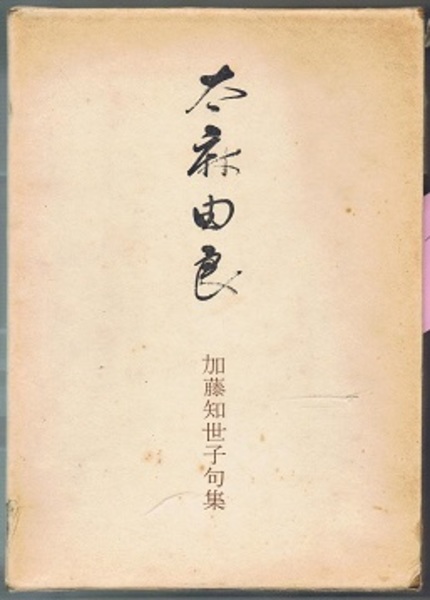 太麻由良
加藤知世子句集